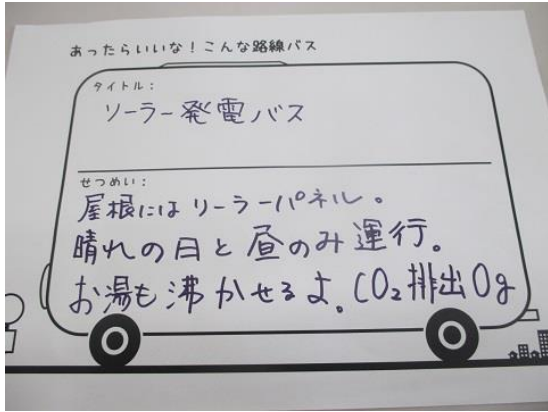 あったらいいな！こんな路線バス
タイトル：
ソーラー発電バス
せつめい：
屋根にはソーラーパネル。
晴れの日と昼のみ運行。
お湯も沸かせるよ。CO₂排出0g